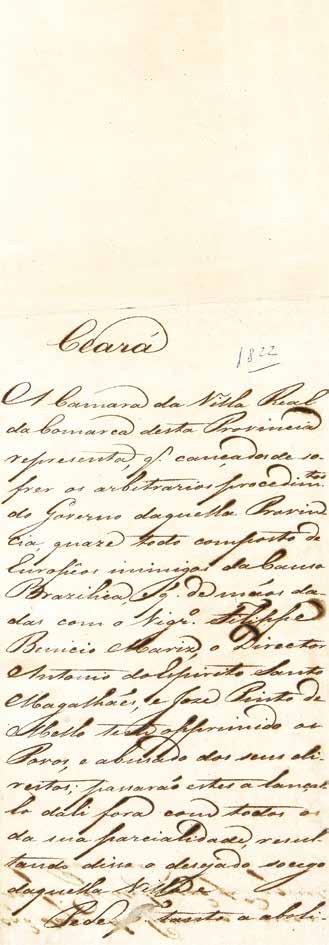 Ceará
1822
A Camara da Villa Real
da Comarca desta Provincia
representa, q. cançados de so-
frer os arbitrarios procedimtos
do Governo daquella Provin
cia, quaze todo composto de
Europêos inimigos da Cauza
Brazilica, q. de mãos da-
das com o Vigro. Filippe
Benicio Mariz, o Director
Antonio do Espirito Santo
Magalhães, e Joze Pinto de
Mello tem opprimido os
Povos, e abusado dos seus di-
reitos; passarão estes a lança-
lo dali fora com todos os
da sua parcialidade, resul-
tando disso o desejado socego
daquella Villa
Pede tanto a aboli-